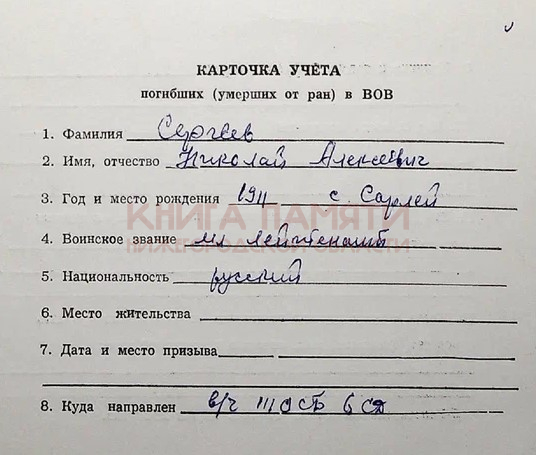 КАРТОЧКА УЧЁТА
погибших (умерших от ран) в ВОВ
1. Фамилия Сергеев
2. Имя, отчество Николай Алексеевич
3. Год и место рождения 1911 с Сарлей
КНИГА ПАМЯТИ
4. Воинское звание мл лейтенант
НИЖЕГОРОДСКОЙ ОБЛАСТИ
5. Национальность русский
6. Место жительства
7. Дата и место призыва
8. Куда направлен в/ч 6 СД